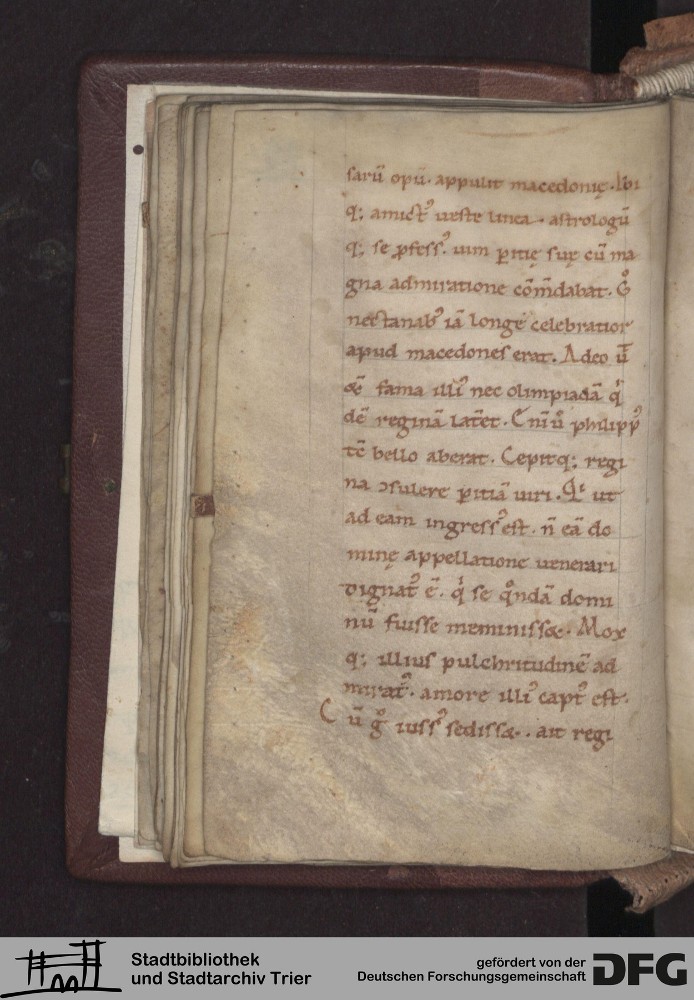 sarū opū. appulit macedonię. Ibi
q; amict᷒ ueste linea. astrologū
q; se ꝓfess᷒. uim ꝑitię suę cū ma
gna admiratione cōm̄dabat. G͛
nectanab᷒ iā longe celebratior
apud macedones erat. Adeo ū
& fama illi᷒ nec olimpiadā qͥ
dē reginā latēt. C nī u͛ philipp᷒
tc̄ bello aberat. Cepitq; regi
na ↄsulere ꝑitiā uiri. Qͥ ut
ad eam ingress᷒ est. n̄ eā do
minę appellatione uenerari
dignat᷒ ē. qͥ se q͛ndā domi
nū fuisse meminiss&. Mox
q; illius pulchritudinē ad
mirat᷒. amore illi᷒ capt᷒ est.
C ū g͛ iuss᷒ sediss&. ait regi
Stadtbibliothek
und Stadtarchiv Trier
gefördert von der
Deutschen Forschungsgemeinschaft
DFG